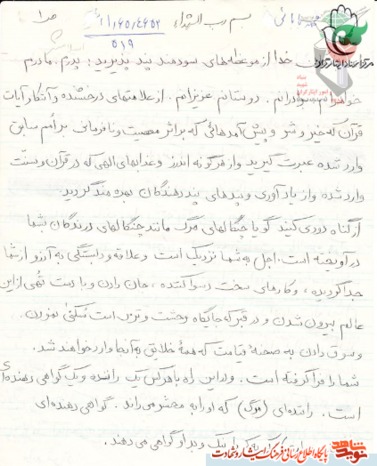 بسم رب الشهداء
ص ۱
۱۱/۶۵/۴۶۵۲
۵۱۹
خدا از موعظه‌های سودمند پند پذیرید؛ پدرم، مادرم
خواهرانم، برادرانم، دوستان عزیزانم، از علامتهای درخشنده و آشکار آیات
قرآن که خیر و شر و پیش‌آمدهائی که بر اثر معصیت و نافرمانی بر امم سابق
وارد شده عبرت گیرید و از هر گونه اندرز و عذابهای الهی که در قرآن و سنت
وارد شده و از یادآوری و پندهای پند دهندگان بهره‌مند گردید.
از گناه دوری کنید گویا چنگالهای مرگ مانند چنگالهای درندگان شما
در آویخته است. اجل به شما نزدیک است و علاقه و دلبستگی به آرزو از شما
جدا گردیده، و کارهای سخت رسوا کننده، جان دادن و با دست تهی از این
عالم بیرون شدن و در قبر که جایگاه وحشت و ترس است سکنی نمودن.
و سوق دادن به صحنهٔ قیامت که همهٔ خلایق به آنجا وارد خواهند شد.
شما را فرا گرفته است. و در این راه با هر کس یک راننده و یک گواهی دهنده‌ای
است. راننده‌ای (مرگ) که او را به محشر می‌راند. گواهی دهنده‌ای
نیک و بد او گواهی می‌دهند.
مرکز اسناد ایثارگران
پایگاه اطلاع‌رسانی فرهنگ ایثار و شهادت
نوید شاهد